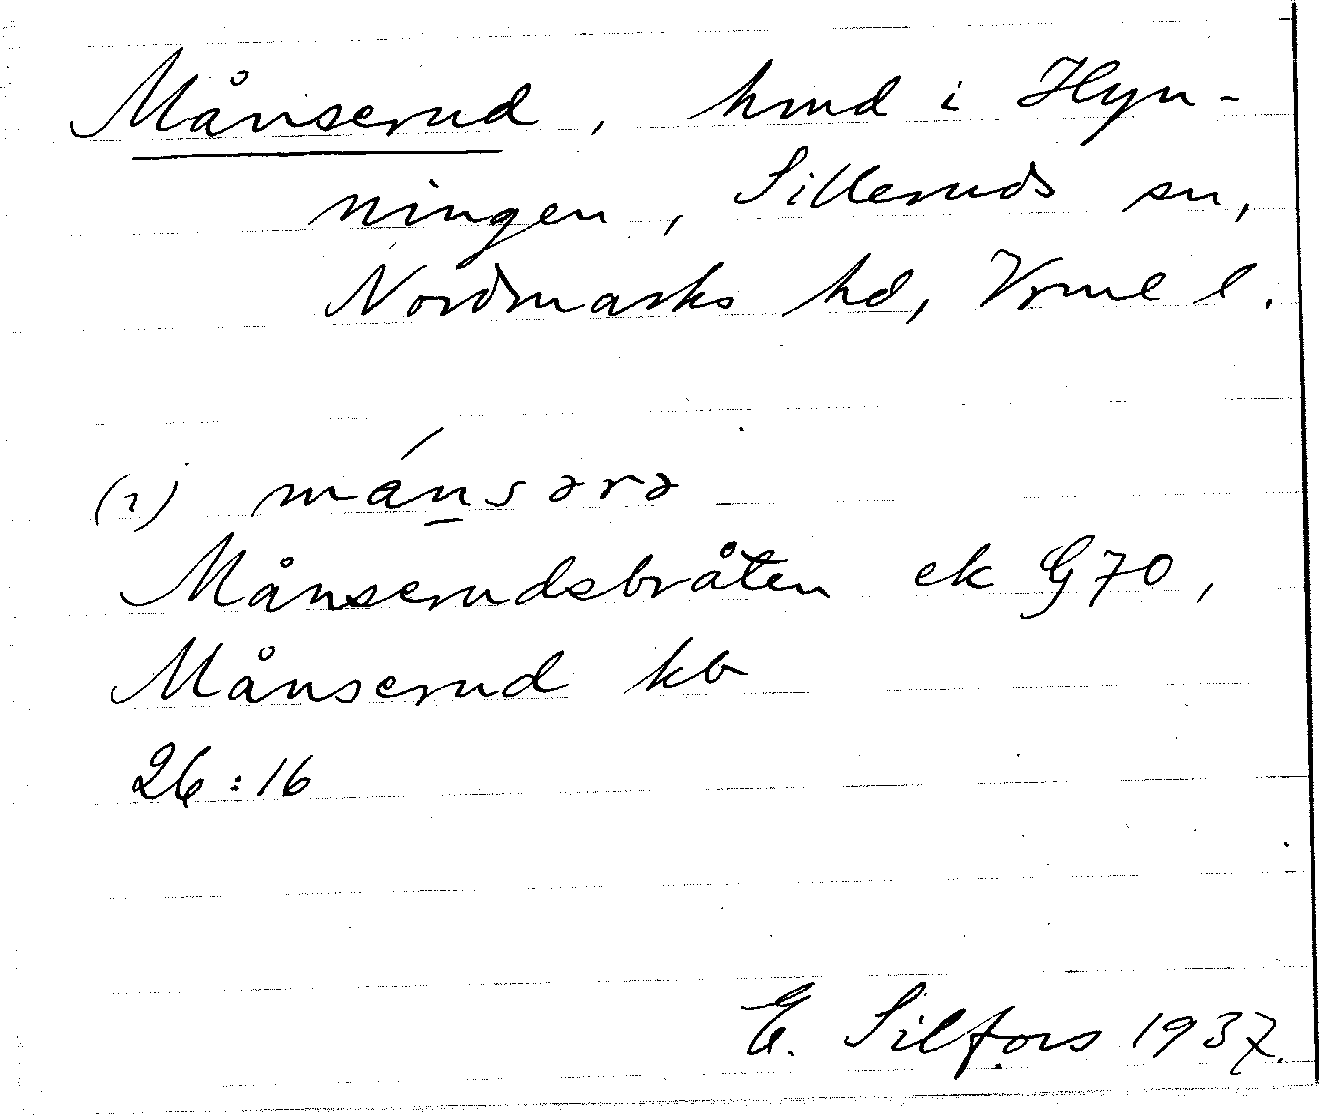 Månserud, hmd i Hyn-
ningen, Silleruds sn,
Nordmarks hd, Vrml l.
(1) mánsərə
Månserudsbråten ek G 70,
Månserud kb
26:16
E. Silfors 1937.